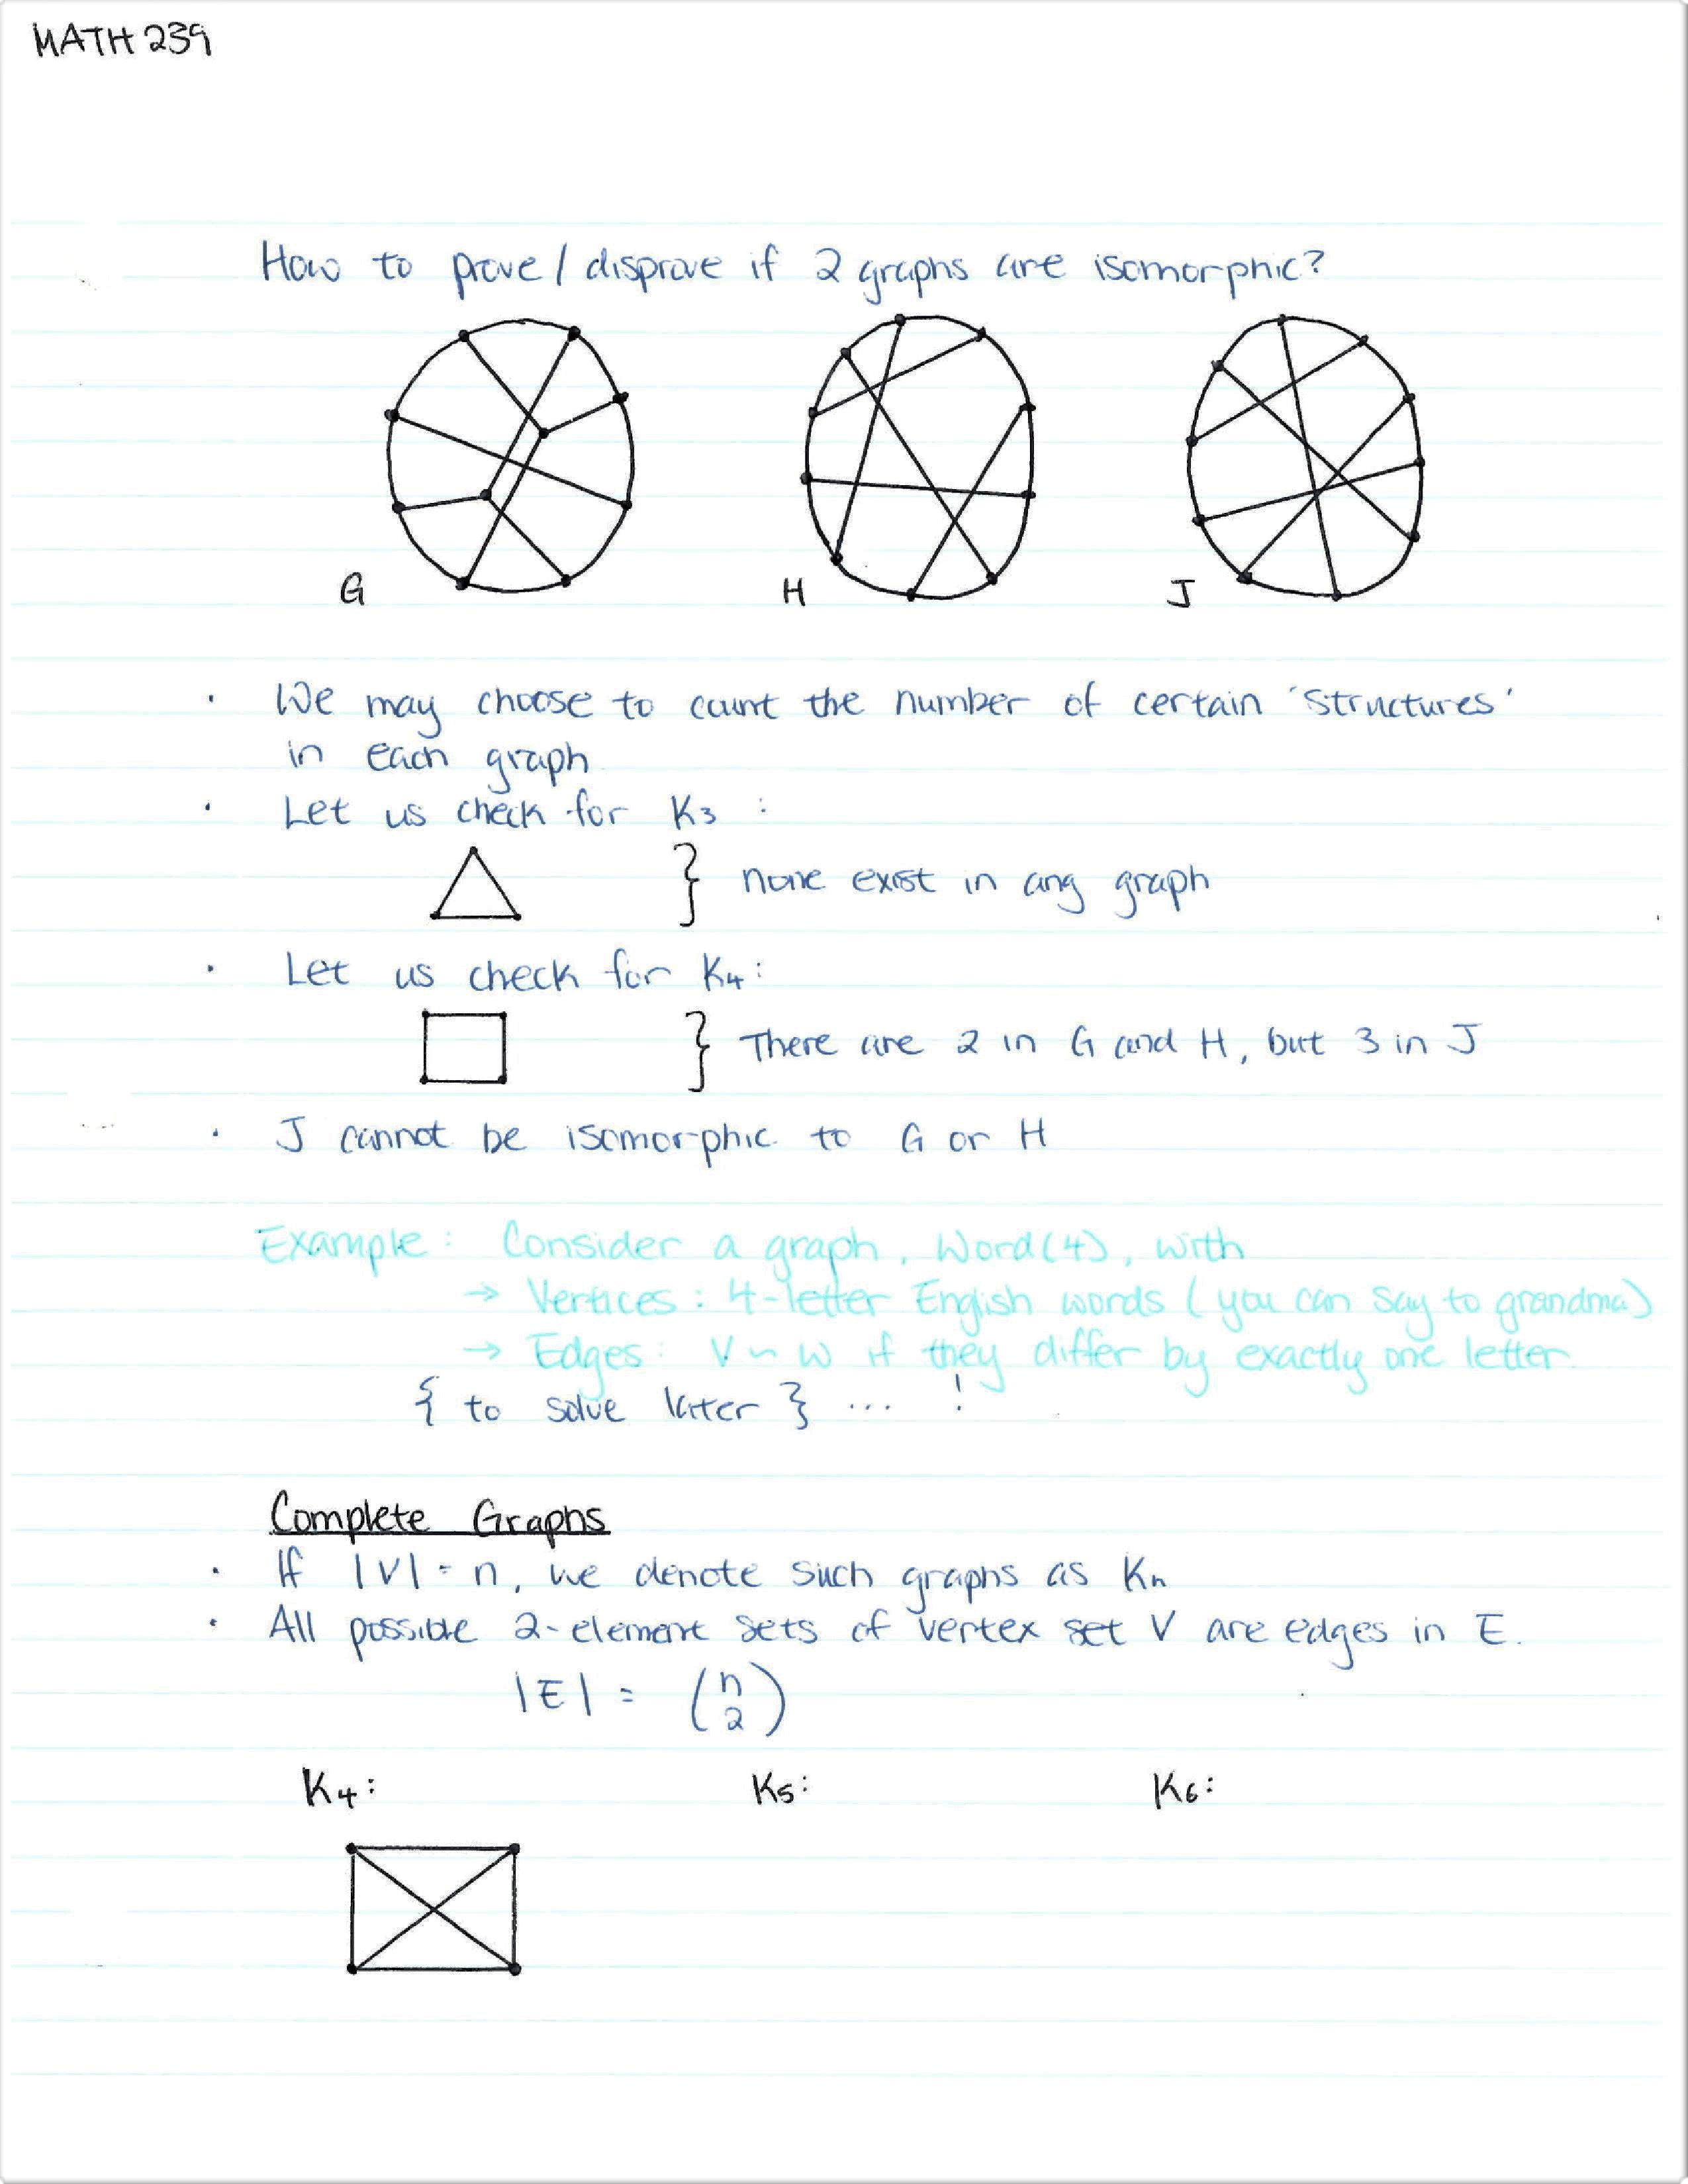 MATH 239
How to prove / disprove if 2 graphs are isomorphic?
G H J
· We may choose to count the number of certain 'structures'
in each graph
· Let us check for K₃ :
} none exist in any graph
· Let us check for K₄:
} There are 2 in G and H, but 3 in J
· J cannot be isomorphic to G or H
Example: Consider a graph, Word(4), with
→ Vertices: 4-letter English words (you can say to grandma)
→ Edges: V ~ W if they differ by exactly one letter
{ to solve later } ... !
Complete Graphs
· If |V| = n, we denote such graphs as Kₙ
· All possible 2-element sets of vertex set V are edges in E.
|E| = (n 2)
K₄: K₅: K₆: